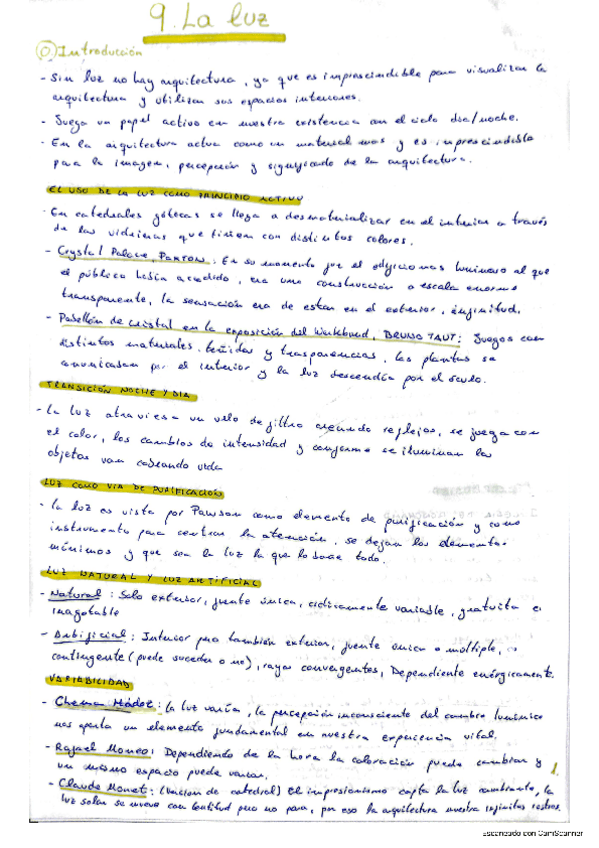 9. La luz
0. Introducción
- Sin luz no hay arquitectura, ya que es imprescindible para visualizar la
arquitectura y utilizar sus espacios interiores.
- Juega un papel activo en nuestra existencia con el ciclo día/noche.
- En la arquitectura actua como un material mas y es imprescindible
para la imagen, percepción y significado de la arquitectura.
EL USO DE LA LUZ COMO PRINCIPIO ACTIVO
- En catedrales góticas se llega a desmaterializar en el interior a través
de las vidrieras que tiñen con distintos colores.
- Crystal Palace, PAXTON: En su momento fue el edificio mas luminoso al que
el público había acudido, era una construcción a escala enorme
transparente, la sensación era de estar en el exterior, infinitud.
- Pabellón de cristal en la exposición del Werkbund, BRUNO TAUT: Juegos con
distintos materiales, teñidos y transparencias, las plantas se
comunicaban por el interior y la luz descendía por el óculo.
TRANSICIÓN NOCHE Y DIA
- La luz atraviesa un velo de filtro creando reflejos, se juega con
el color, los cambios de intensidad y conforme se iluminan los
objetos van cobrando vida
LUZ COMO VIA DE PURIFICACIÓN
- La luz es vista por Pawson como elemento de purificación y como
instrumento para centrar la atención, se dejan los elementos
mínimos y que sea la luz la que lo bañe todo.
LUZ NATURAL Y LUZ ARTIFICIAL
- Natural: Solo exterior, fuente única, cíclicamente variable, gratuita e
inagotable
- Artificial: Interior pero también exterior, fuente única o múltiple,
contingente (puede suceder o no), rayos convergentes, Dependiente enérgicamente.
VARIABILIDAD
- Chema Mádoz: La luz varía, la percepción inconsciente del cambio lumínico
nos aporta un elemento fundamental en nuestra experiencia vital.
- Rafael Moneo: Dependiendo de la hora la coloración puede cambiar y
un mismo espacio puede variar.
- Claude Monet: (Unión de catedral) El impresionismo capta la luz cambiante, la
luz solar se mueve con lentitud pero no para, por eso la arquitectura muestra infinitos rostros.
1.
Escaneado con CamScanner